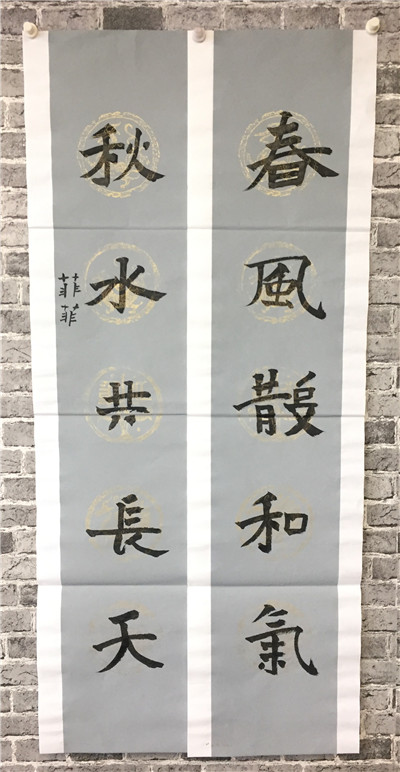 春風散和氣
秋水共長天
菲菲